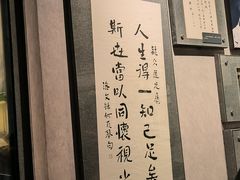 人生得一知己足矣
斯世當以同懷視之
洛文錄何瓦琴句